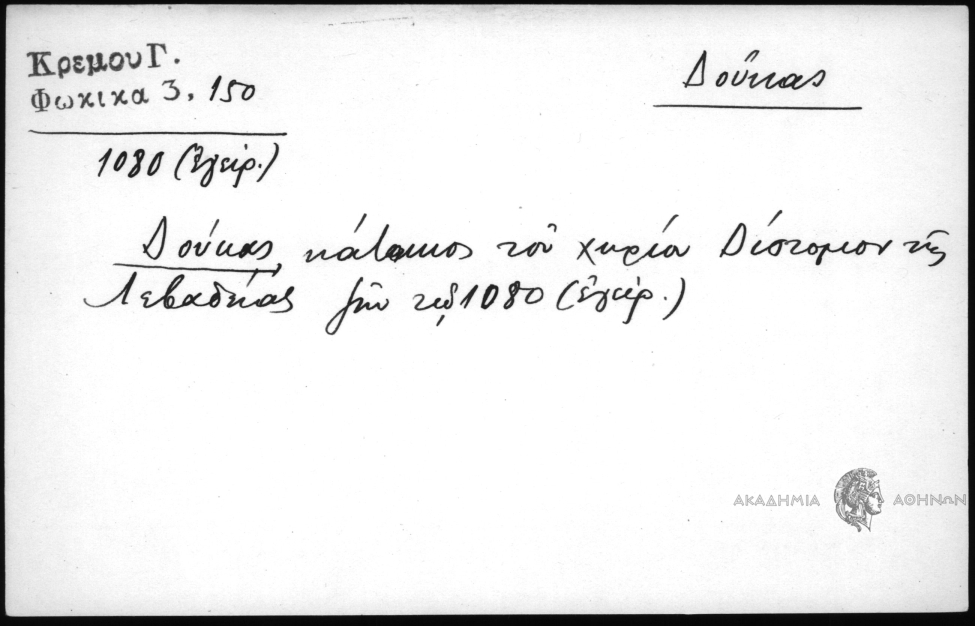 Κρεμου Γ.
Φωκικα 3, 150
Δούκας
1080 (Ἐγειρ.)
Δούκας, κάτοικος τοῦ χωρίου Δίστομον τῆς
Λεβαδείας ζῶν τῷ 1080 (ἐγειρ.)
ΑΚΑΔΗΜΙΑ ΑΘΗΝΩΝ